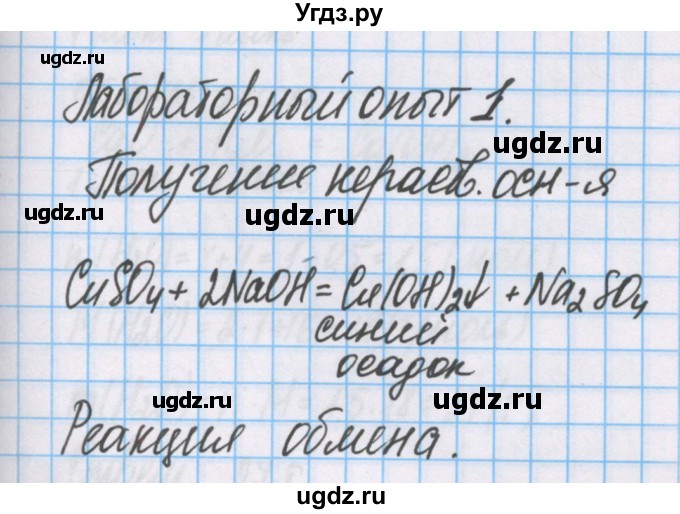 Угдз.ру
ugdz.ru
Лабораторный опыт 1.
ugdz.ru
Получение нераств. осн-я
ugdz.ru
CuSO₄ + 2NaOH = Cu(OH)₂↓ + Na₂SO₄
ugdz.ru ugdz.ru
синий
осадок
ugdz.ru ugdz.ru
Реакция обмена.
ugdz.ru
ugdz.ru